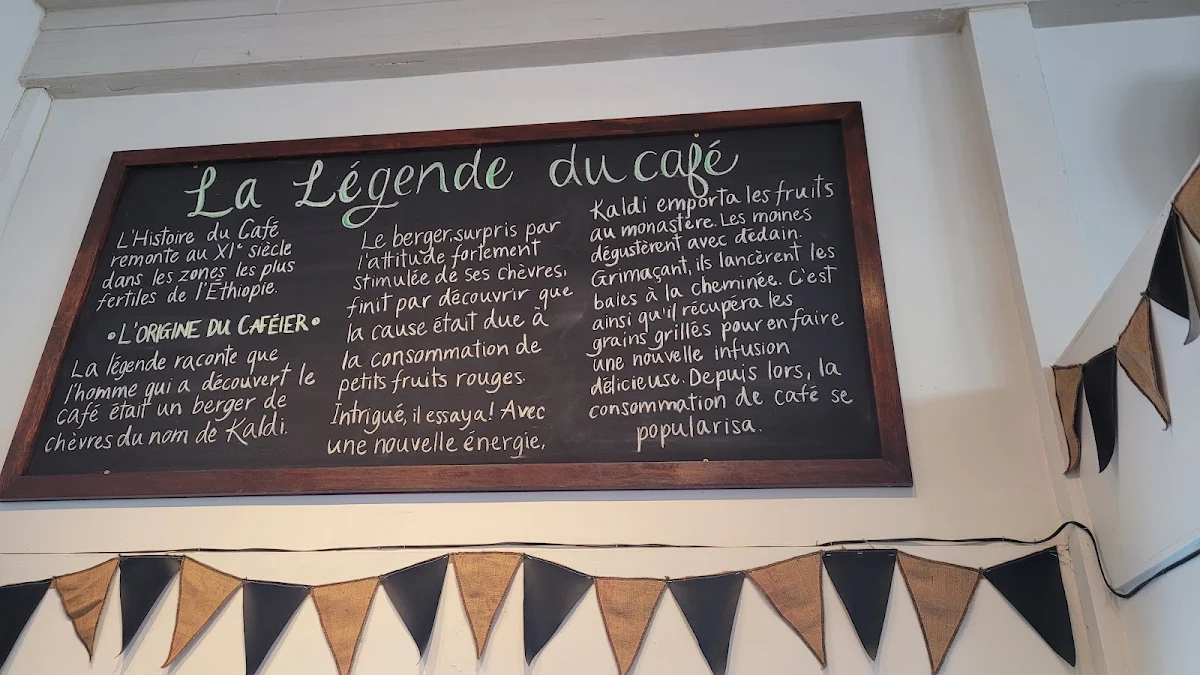 La Légende du café
L'Histoire du Café
remonte au XIe siècle
dans les zones les plus
fertiles de l'Éthiopie.
• L'ORIGINE DU CAFÉIER •
La légende raconte que
l'homme qui a découvert le
café était un berger de
chèvres du nom de Kaldi.
Le berger, surpris par
l'attitude fortement
stimulée de ses chèvres,
finit par découvrir que
la cause était due à
la consommation de
petits fruits rouges.
Intrigué, il essaya! Avec
une nouvelle énergie,
Kaldi emporta les fruits
au monastère. Les moines
dégustèrent avec dédain.
Grimaçant, ils lancèrent les
baies à la cheminée. C'est
ainsi qu'il récupéra les
grains grillés pour en faire
une nouvelle infusion
délicieuse. Depuis lors, la
consommation de café se
popularisa.